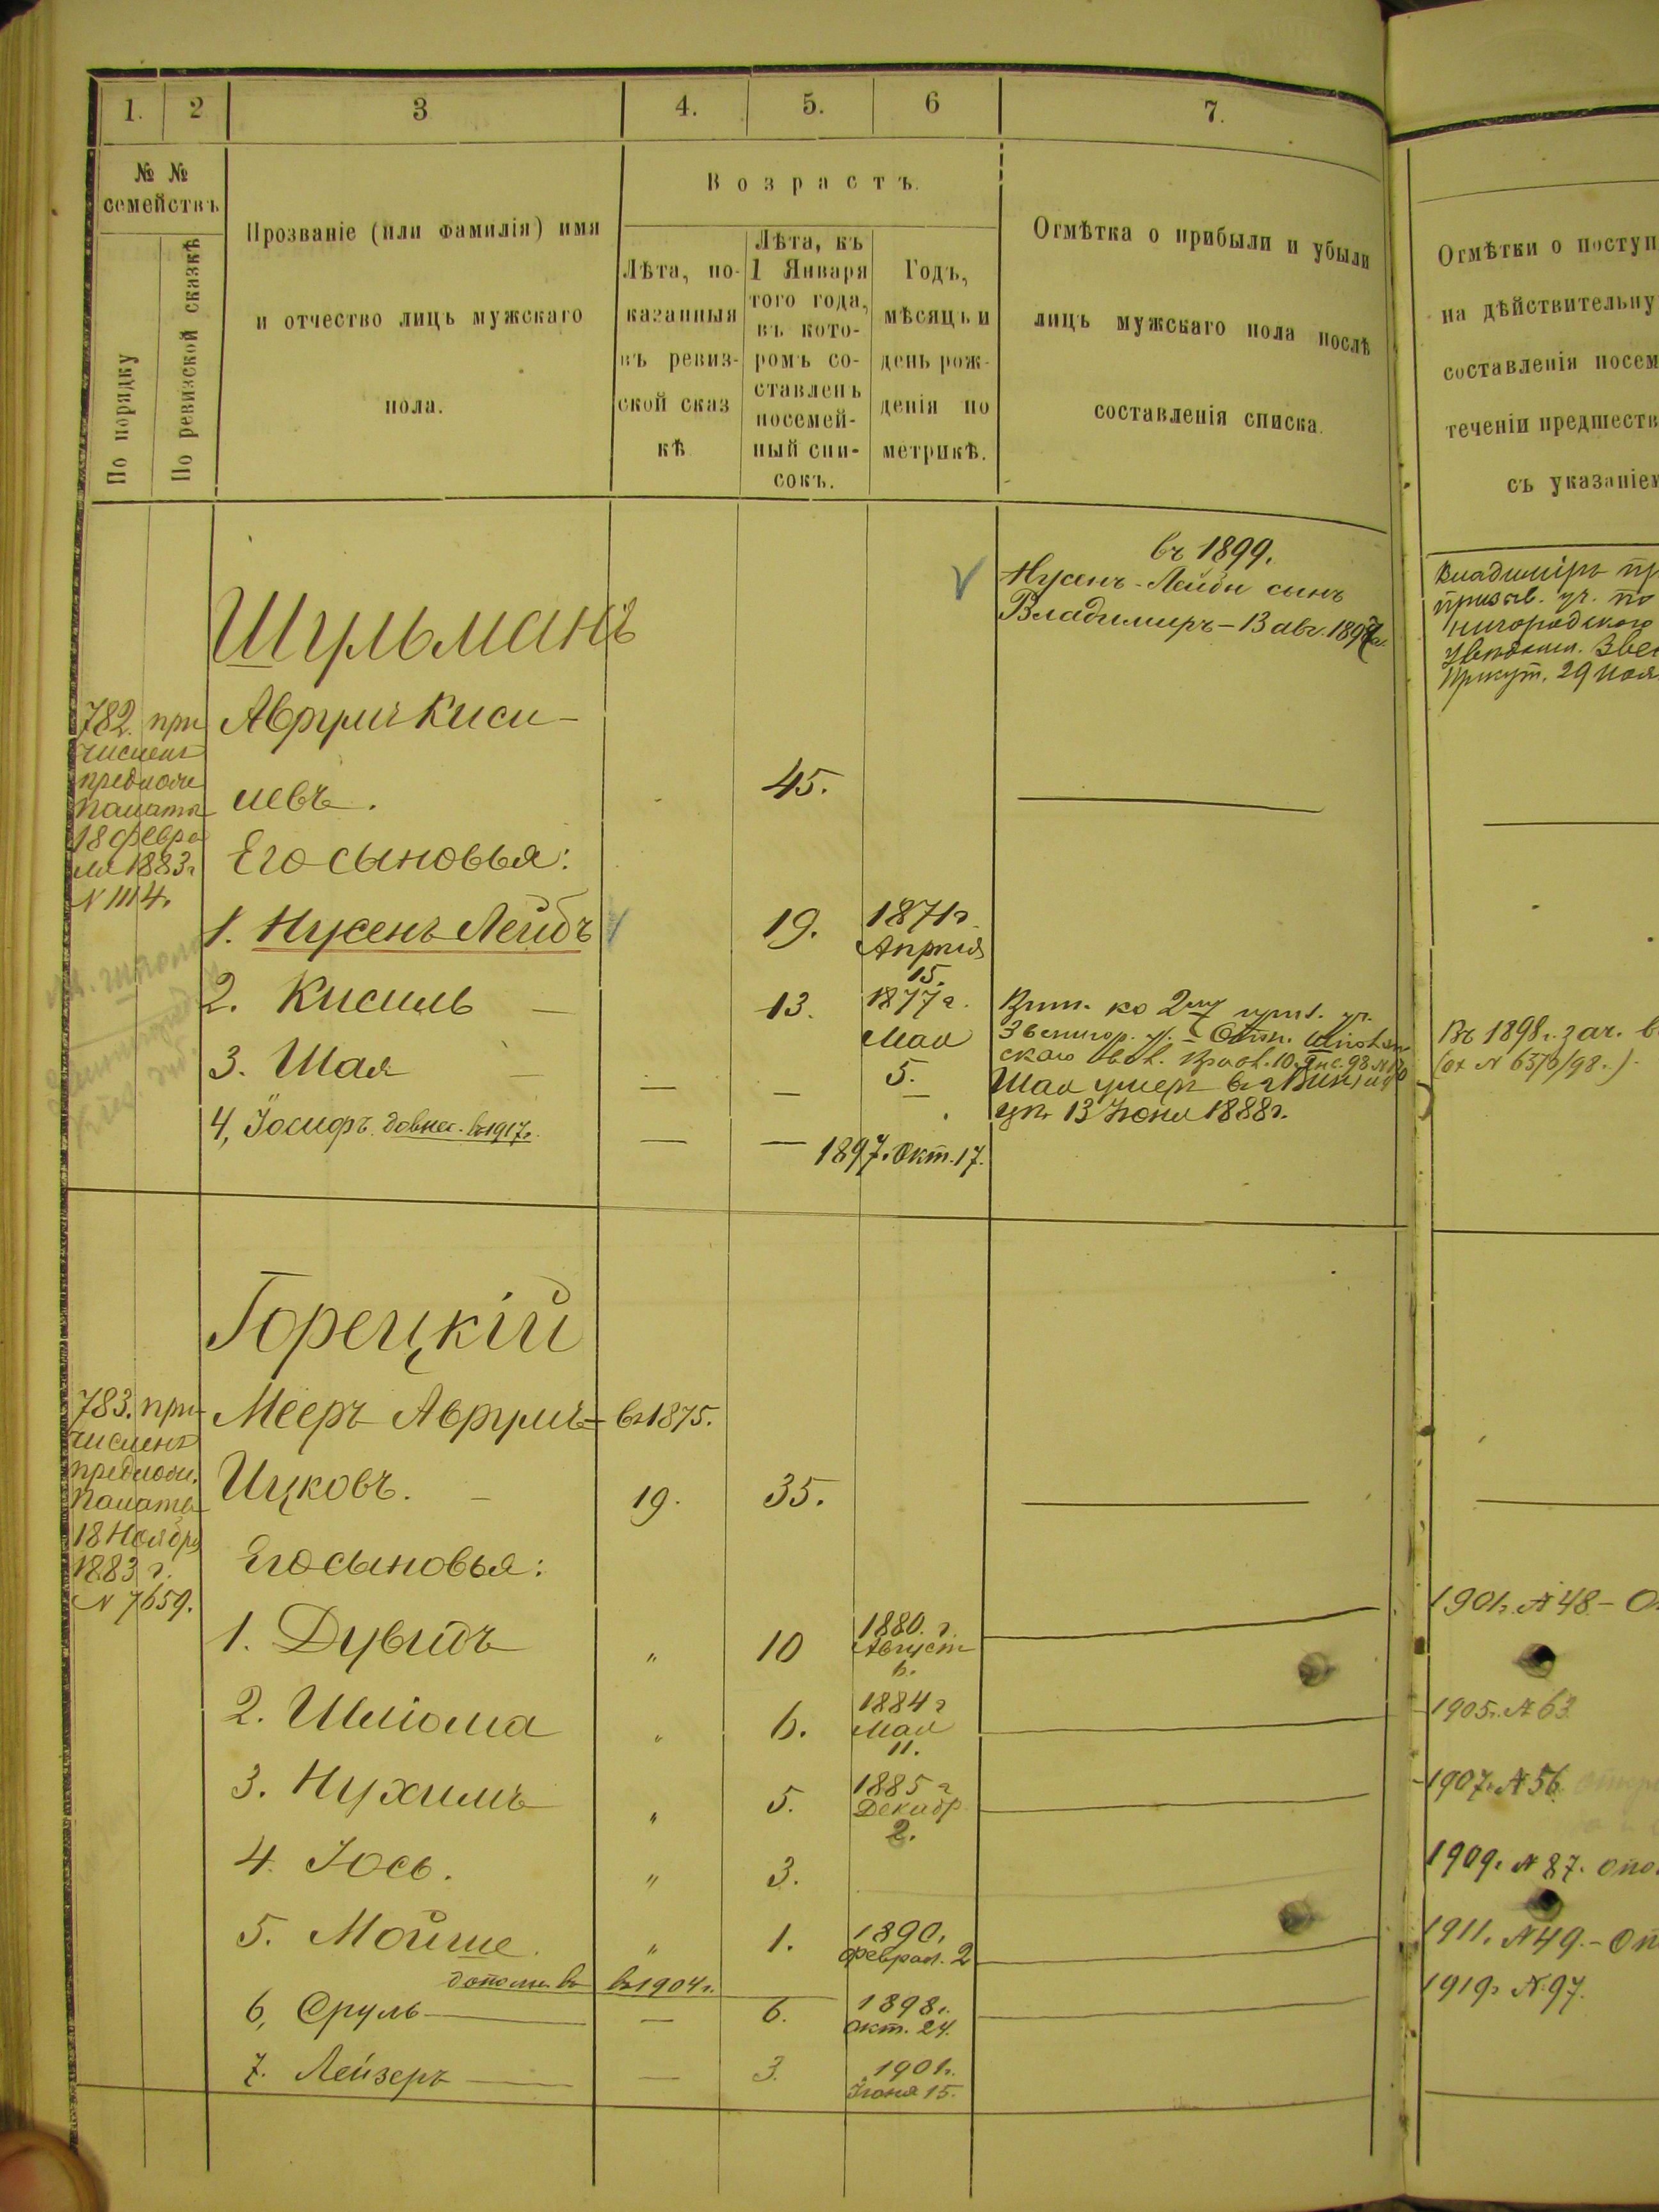 1. 2 3 4. 5. 6 7.
№ № семействъ
По порядку
По ревизской сказкѣ
Прозваніе (или фамилія) имя
и отчество лицъ мужскаго
пола.
Возрастъ.
Лѣта, по-
казанныя
въ ревиз-
ской сказ
кѣ
Лѣта, къ
1 Января
того года,
въ кото-
ромъ со-
ставленъ
посемей-
ный спи-
сокъ.
Годъ,
мѣсяцъ и
день рож-
денія по
метрикѣ.
Отмѣтка о прибыли и убыли
лицъ мужскаго пола послѣ
составленія списка.
Отмѣтки о поступ
на дѣйствительну
составленія посем
теченіи предшеств
съ указаніем
въ 1899.
Нусенъ-Лейбы сынъ
Владимиръ - 13 авг. 1897
Владиміръ пр
призыв. уч. по
Иркут. 29 Ноя
Шульманъ
782. при
численъ
предлож.
Палаты
18 Февра
ля 1883 г.
N 1114.
Аврумъ Киси-
левъ. 45.
Его сыновья:
1. Нусенъ Лейбъ 19. 1871 г. Апрѣля 15.
2. Кисиль 13. 1877 г. Мая 5.
3. Шая — — —
Шая умеръ
13 Іюня 1888 г.
4, Іосифъ. довнес. въ 1917 г. — — 1897. Окт. 17.
Въ 1898 г. зач. в
Горецкій
783. при-
численъ
предлож.
Палаты
18 Ноября
1883 г.
N 7659.
Мееръ Аврумъ- въ 1875.
Ицковъ. 19. 35.
Его сыновья:
1. Дувидъ " 10 1880. г. Август 6. 1901 г. № 48 - О
2. Шліома " 6. 1884 г Мая 11. 1905 г. № 63.
3. Нухимъ " 5. 1885 г Декабр. 2. 1907 г. № 56.
4. Іось. " 3. 1909. № 87. Опо
5. Мойше. " 1. 1890. Феврал. 2 1911. № 49. - Оп
дополн. въ въ 1904 г.
6, Сруль — — 6. 1898 г. Окт. 24. 1919 г № 97.
7. Лейзеръ — — 3. 1901 г. Іюня 15.